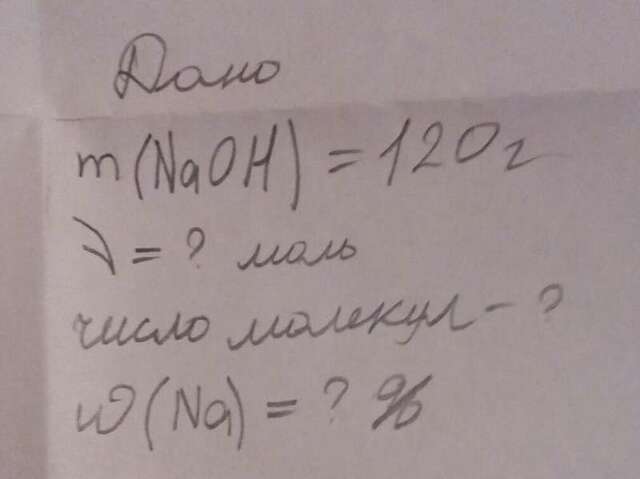 Дано
m(NaOH) = 120г
ν = ? моль
число молекул - ?
ω(Na) = ? %